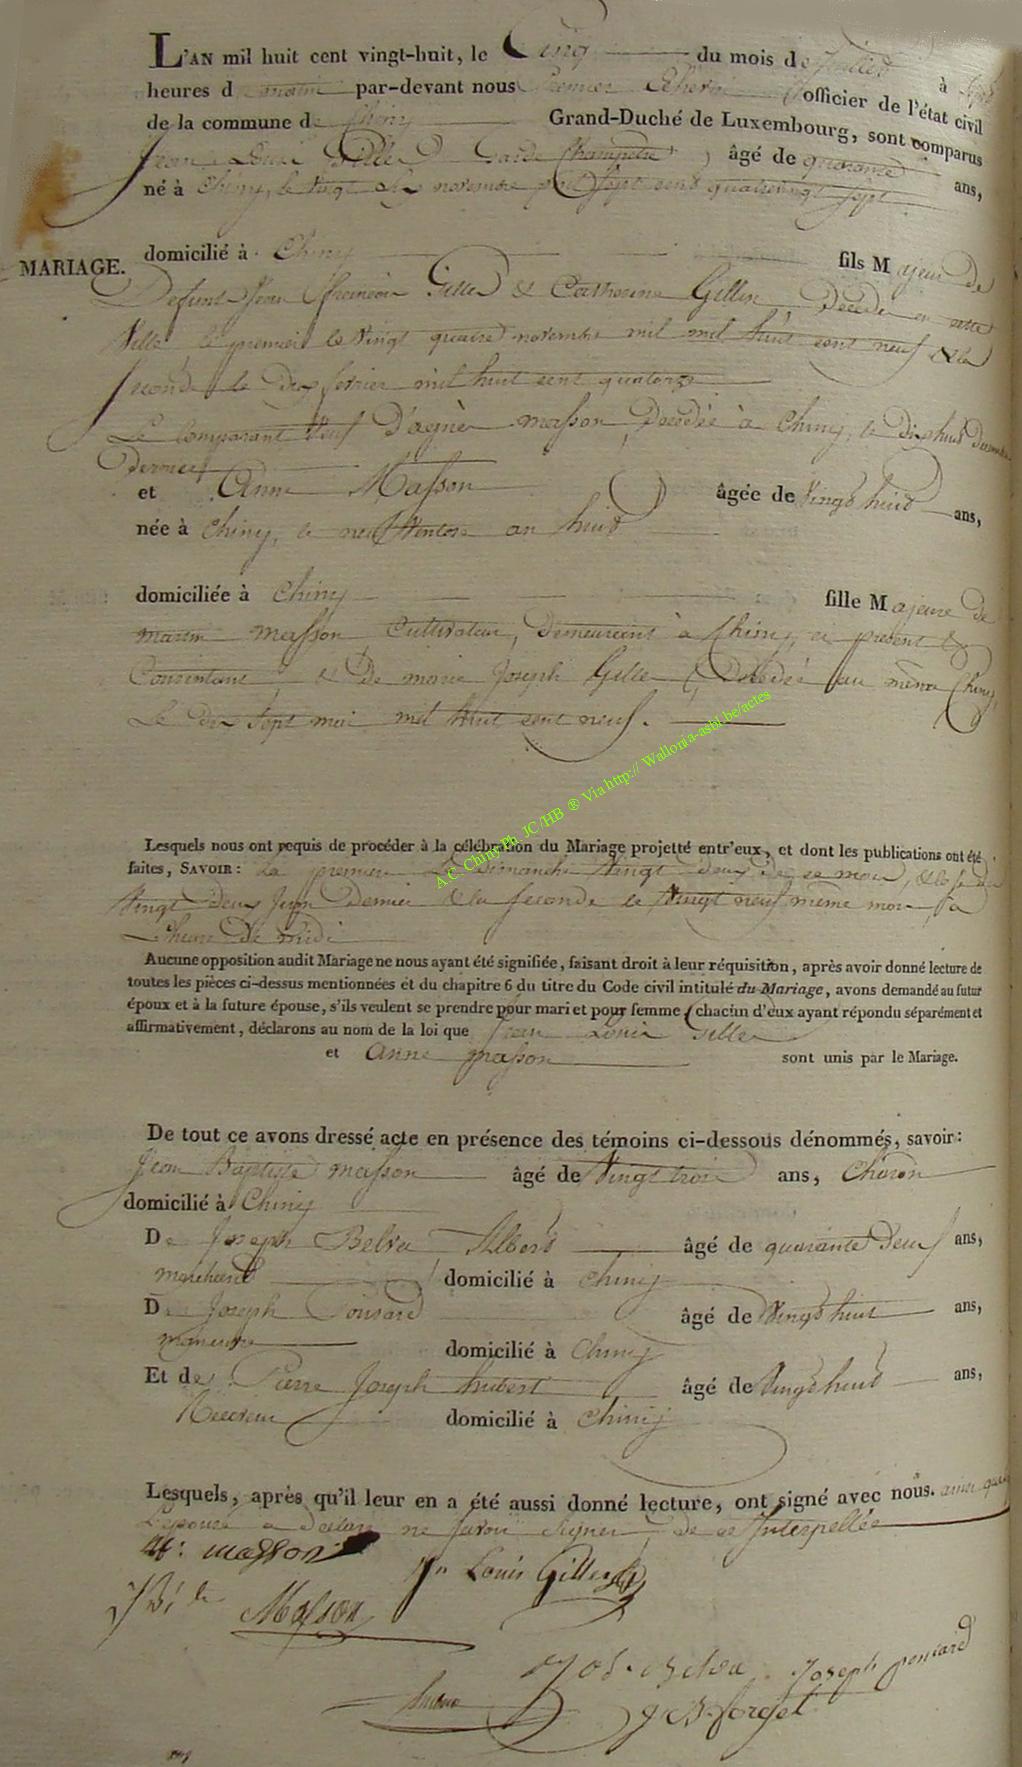 L'AN mil huit cent vingt-huit, le Cinq du mois de Juillet à
heures d matin par-devant nous premier Echevin officier de l'état civil
de la commune de Chiny Grand-Duché de Luxembourg, sont comparus
Jean Louis Gilles Garde Champetre, âgé de quarante ans,
né à Chiny, le vingt novembre mil sept cent quatrevingt sept
domicilié à Chiny fils Majeur de
MARIAGE.
Defunt Jean Gilles & Catherine Gillen Décédé en cette
Ville, le premier le Vingt quatre novembre mil mil huit cent neuf & la
Seconde le dix fevrier mil huit cent quatorze
Le Comparant Veuf D'agnès masson, Décédée à Chiny, le dix huit Decembre
Dernier
et Anne Masson âgée de Vingt huit ans,
née à Chiny, le neuf Ventose an huit
domiciliée à Chiny fille Majeure de
martin masson, Cultivateur, Demeurant à Chiny, ci présent &
Consentant & De marie Joseph Gilles Décédée au même Chiny,
Le dix Sept mai mil huit cent neuf.
Lesquels nous ont requis de procéder à la célébration du Mariage projetté entr'eux, et dont les publications ont été
faites, SAVOIR: La premiere Le Dimanche Vingt deux
Vingt Deux Juin Dernier & la Seconde le Vingt neuf même mois, à
L'heure De midi
Aucune opposition audit Mariage ne nous ayant été signifiée, faisant droit à leur réquisition, après avoir donné lecture de
toutes les pièces ci-dessus mentionnées et du chapitre 6 du titre du Code civil intitulé du Mariage, avons demandé au futur
époux et à la future épouse, s'ils veulent se prendre pour mari et pour femme, chacun d'eux ayant répondu séparément et
affirmativement, déclarons au nom de la loi que Jean Louis Gilles
et Anne masson sont unis par le Mariage.
De tout ce avons dressé acte en présence des témoins ci-dessous dénommés, savoir:
Jean Baptiste masson âgé de Vingt trois ans, Charon
domicilié à Chiny
De Joseph Belva Albert âgé de quarante Deux ans,
marchand domicilié à Chiny
De Joseph Ponsard âgé de Vingt huit ans,
manœuvre domicilié à Chiny
Et de Pierre Joseph hubert âgé de Vingt huit ans,
Receveur domicilié à Chiny
Lesquels, après qu'il leur en a été aussi donné lecture, ont signé avec nous. ainsi que
L'epouse a Déclaré ne Savoir Signer, De ce Interpellée
M: masson
Jn Louis Gilles
JBte Masson
Jos. Belva Joseph ponsard
hubert J B forget
A.C. Chiny Ph. JC/HB ® Via http:// Wallonia-asbl.be/actes